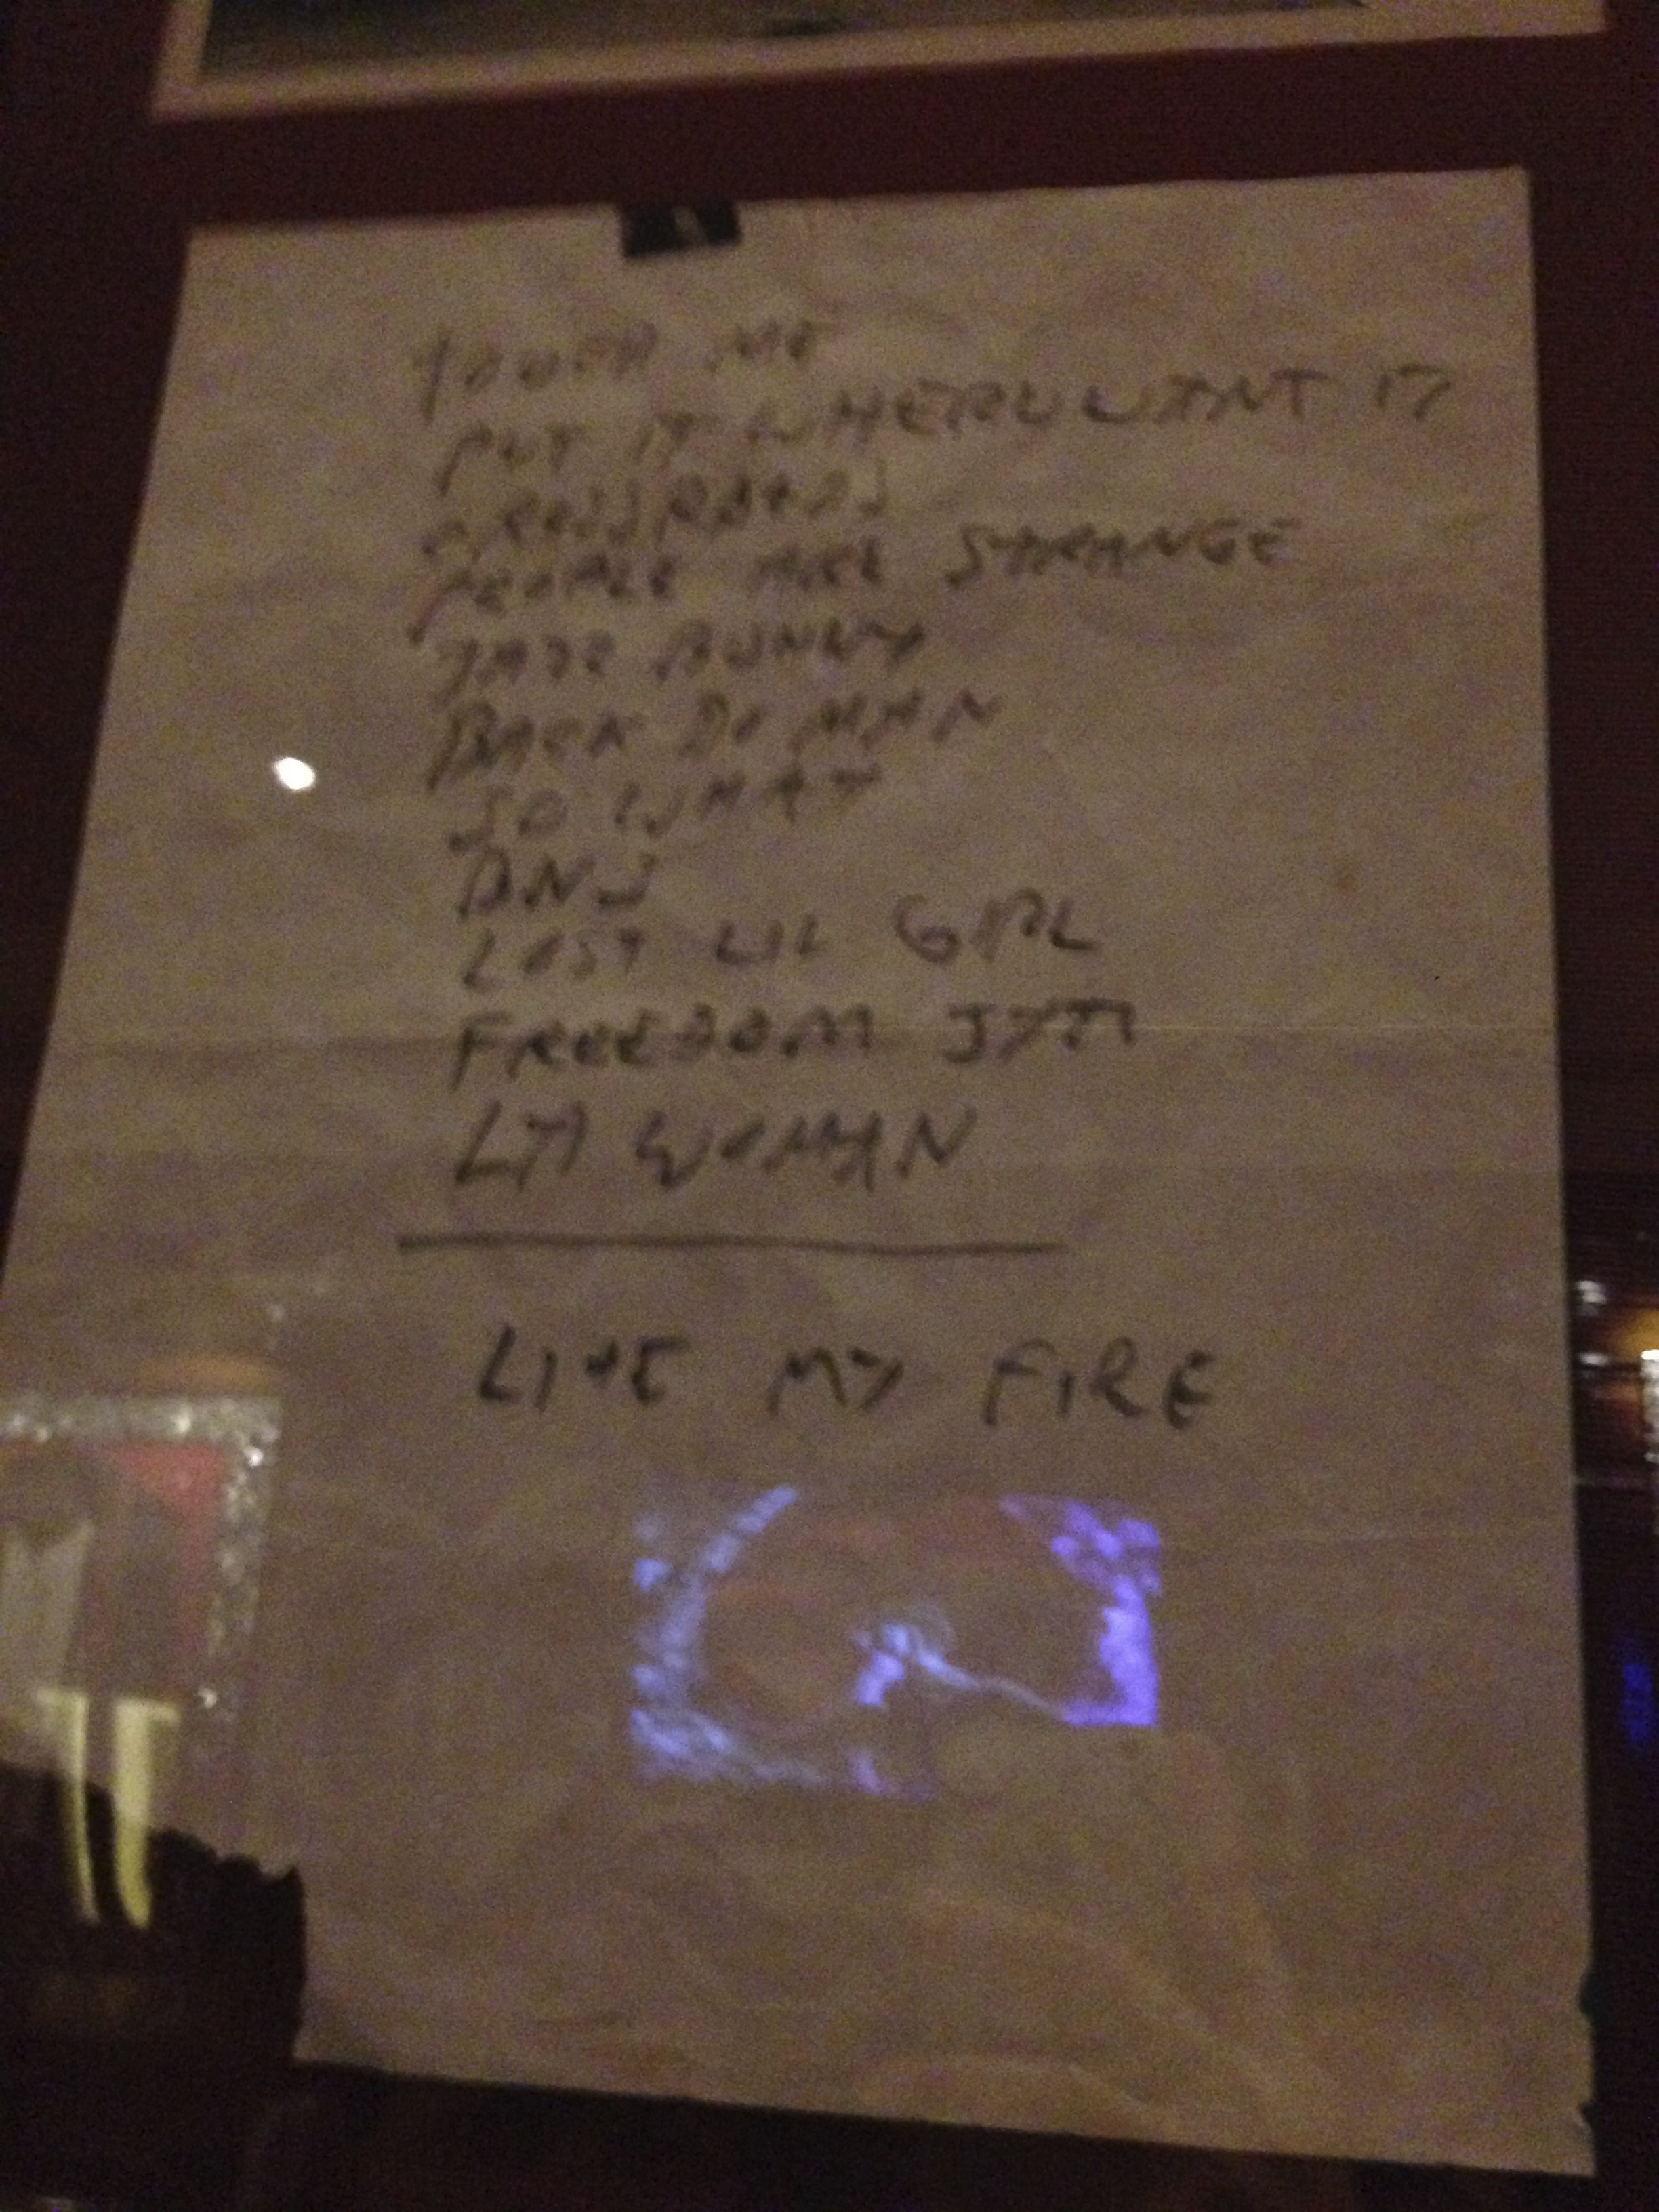 TOUCH ME
PUT IT WHERE U WANT IT
CROSSROADS
PEOPLE ARE STRANGE
JAZZ BUNNY
BACK DO MAN
SO WHAT
LOST LIL GIRL
FREEDOM JAZZ
LA WOMAN
LITE MY FIRE